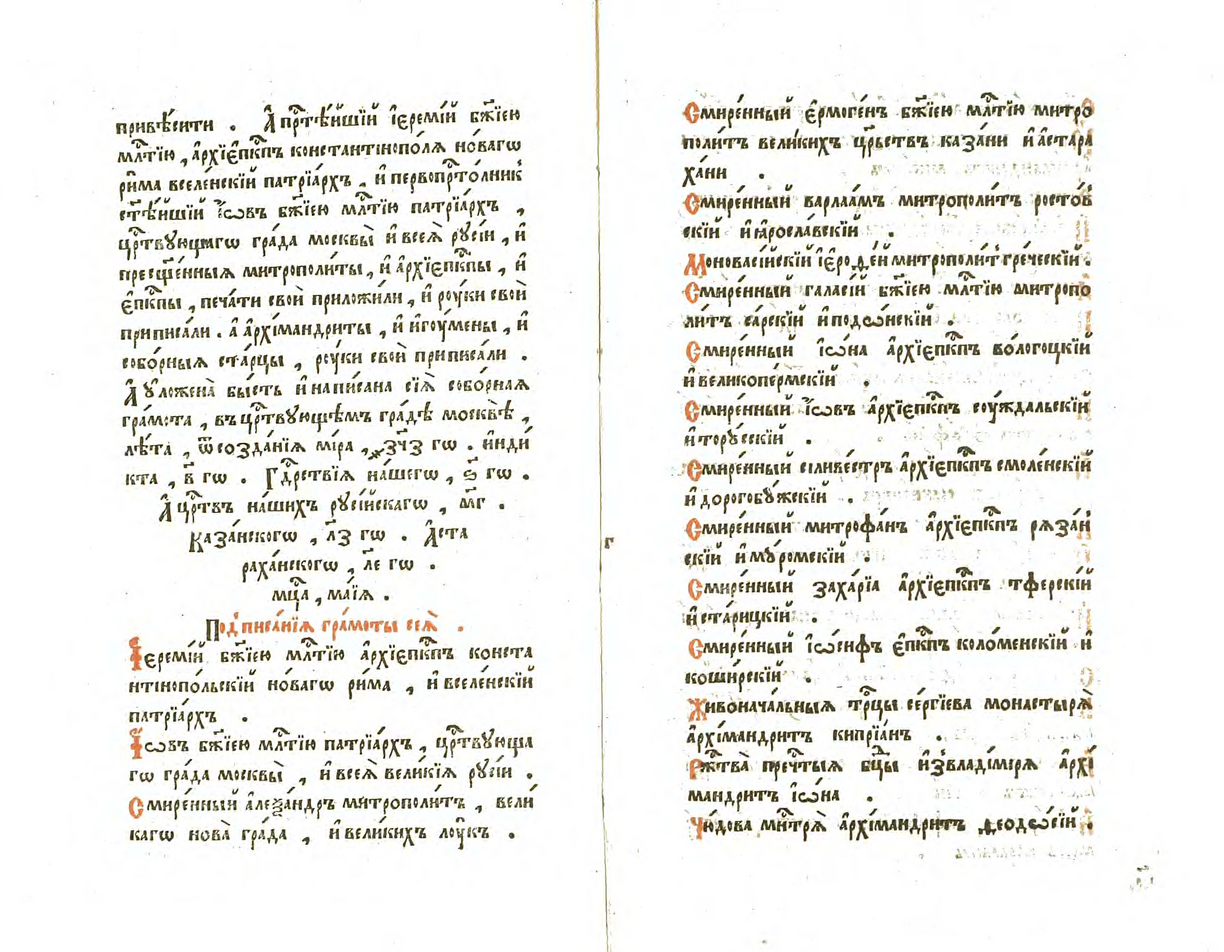 привѣсити . А҆ прⷭ҇тѣ́йшїй і҆еремі́й бж҃їею
млⷭ҇тїю , а҆рхїє҆пⷭ҇кпъ константінопо́лѧ но́вагѡ
ри́ма вселе́нскїй патрїа́рхъ , и҆ первопрⷭ҇то́лник
ст҃ѣ́йшїй і҆́ѡвъ бж҃їею млⷭ҇тїю патрїа́рхъ ,
црⷭ҇твꙋющагѡ гра́да москвы̀ и҆ всеѧ̀ рꙋсі́и , и҆
преѡсщ҃е́нныѧ митрополи́ты , и҆ а҆рхїє҆пⷭ҇кпы , и҆
є҆пⷭ҇кпы , печа́ти своѝ приложи́ли , и҆ роу́ки своѝ
приписа́ли . а҆ а҆рхїмандри́ты , и҆ и҆гоу́мены , и҆
собо́рныѧ ста́рцы , роу́ки своѝ приписа́ли .
А҆ ᲂу҆ложена̀ бы́сть и҆ написана сїѧ̀ собо́рнаѧ
гра́мота , въ црⷭ҇твꙋющемъ гра́дѣ москвѣ̀ ,
лѣ́та , ѿ созда́нїѧ мі́ра , ҂зч҃з гѡ . и҆нди
кта , в҃ гѡ . Гдⷭ҇рствїѧ на́шегѡ , ѕ҃ гѡ .
А҆ црⷭ҇твъ на́шихъ рꙋсі́йскагѡ , мг҃ .
Каза́нскогѡ , лз҃ гѡ . А҆ста
раха́нскогѡ , ле҃ гѡ .
мцⷭ҇а , ма́їѧ .
Подписа́нїѧ гра́моты сеѧ̀ .
І҆еремі́й бж҃їею млⷭ҇тїю а҆рхїє҆пⷭ҇кпъ конста
нтінопо́льскїй но́вагѡ ри́ма , и҆ вселе́нскїй
патрїа́рхъ .
І҆́ѡвъ бж҃їею млⷭ҇тїю патрїа́рхъ , црⷭ҇твꙋюща
гѡ гра́да москвы̀ , и҆ всеѧ̀ вели́кїѧ рꙋсі́и .
Смире́нный а҆леѯа́ндръ митрополи́тъ , вели
кагѡ нова̀ гра́да , и҆ вели́кихъ лоу́къ .
Смире́нный є҆рмоге́нъ бж҃їею млⷭ҇тїю митро
поли́тъ вели́кихъ црⷭ҇ьствъ каза́ни и҆ а҆стара
ха́ни .
Смире́нный варлаа́мъ митрополи́тъ росто́в
скїй и҆ ꙗ҆росла́вскїй .
Моновасі́йскїй і҆ероѳе́й митрополи́т гре́ческїй .
Смире́нный галасі́й бж҃їею млⷭ҇тїю митропо
ли́тъ са́рскїй и҆ подѡ́нскїй .
Смире́нный і҆ѡ́на а҆рхїє҆пⷭ҇кпъ во́логоцкїй
и҆ великопе́рмскїй .
Смире́нный і҆́ѡвъ а҆рхїє҆пⷭ҇кпъ соу́ждальскїй
и҆ торꙋ́сскїй .
Смире́нный сіливе́стръ а҆рхїє҆пⷭ҇кпъ смоле́нскїй
и҆ дорогобꙋ́жскїй .
Смире́нный митрофа́нъ а҆рхїє҆пⷭ҇кпъ рѧза́н
скїй и҆ мꙋ́ромскїй .
Смире́нный заха́рїа а҆рхїє҆пⷭ҇кпъ тферскі́й
и҆ ста́рицкїй .
Смире́нный і҆ѡ́сифъ є҆пⷭ҇кпъ коло́менскїй и҆
коши́рскїй .
Живонача́льныѧ трⷪ҇цы се́ргїева монастырѧ̀
а҆рхїмандри́тъ кипрїа́нъ .
Ржⷭ҇тва̀ пречⷭ҇тыѧ бц҃ы и҆з̾ влади́мірѧ а҆рхі
мандри́тъ і҆ѡ́на .
Чю́дова мⷭ҇нтрѧ̀ а҆рхїмандри́тъ ѳеодѡ́сїй .
г